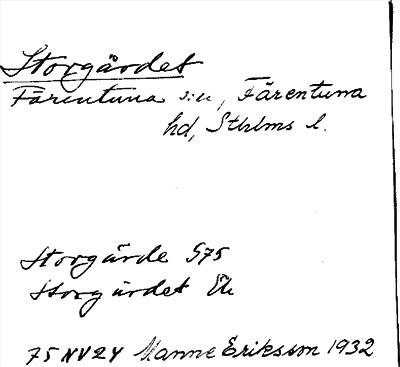 Storgärdet
Färentuna s:n, Färentuna
hd, Sthlms l.
Storgärde S75
Storgärdet Ek
75 NV 24 Manne Eriksson 1932